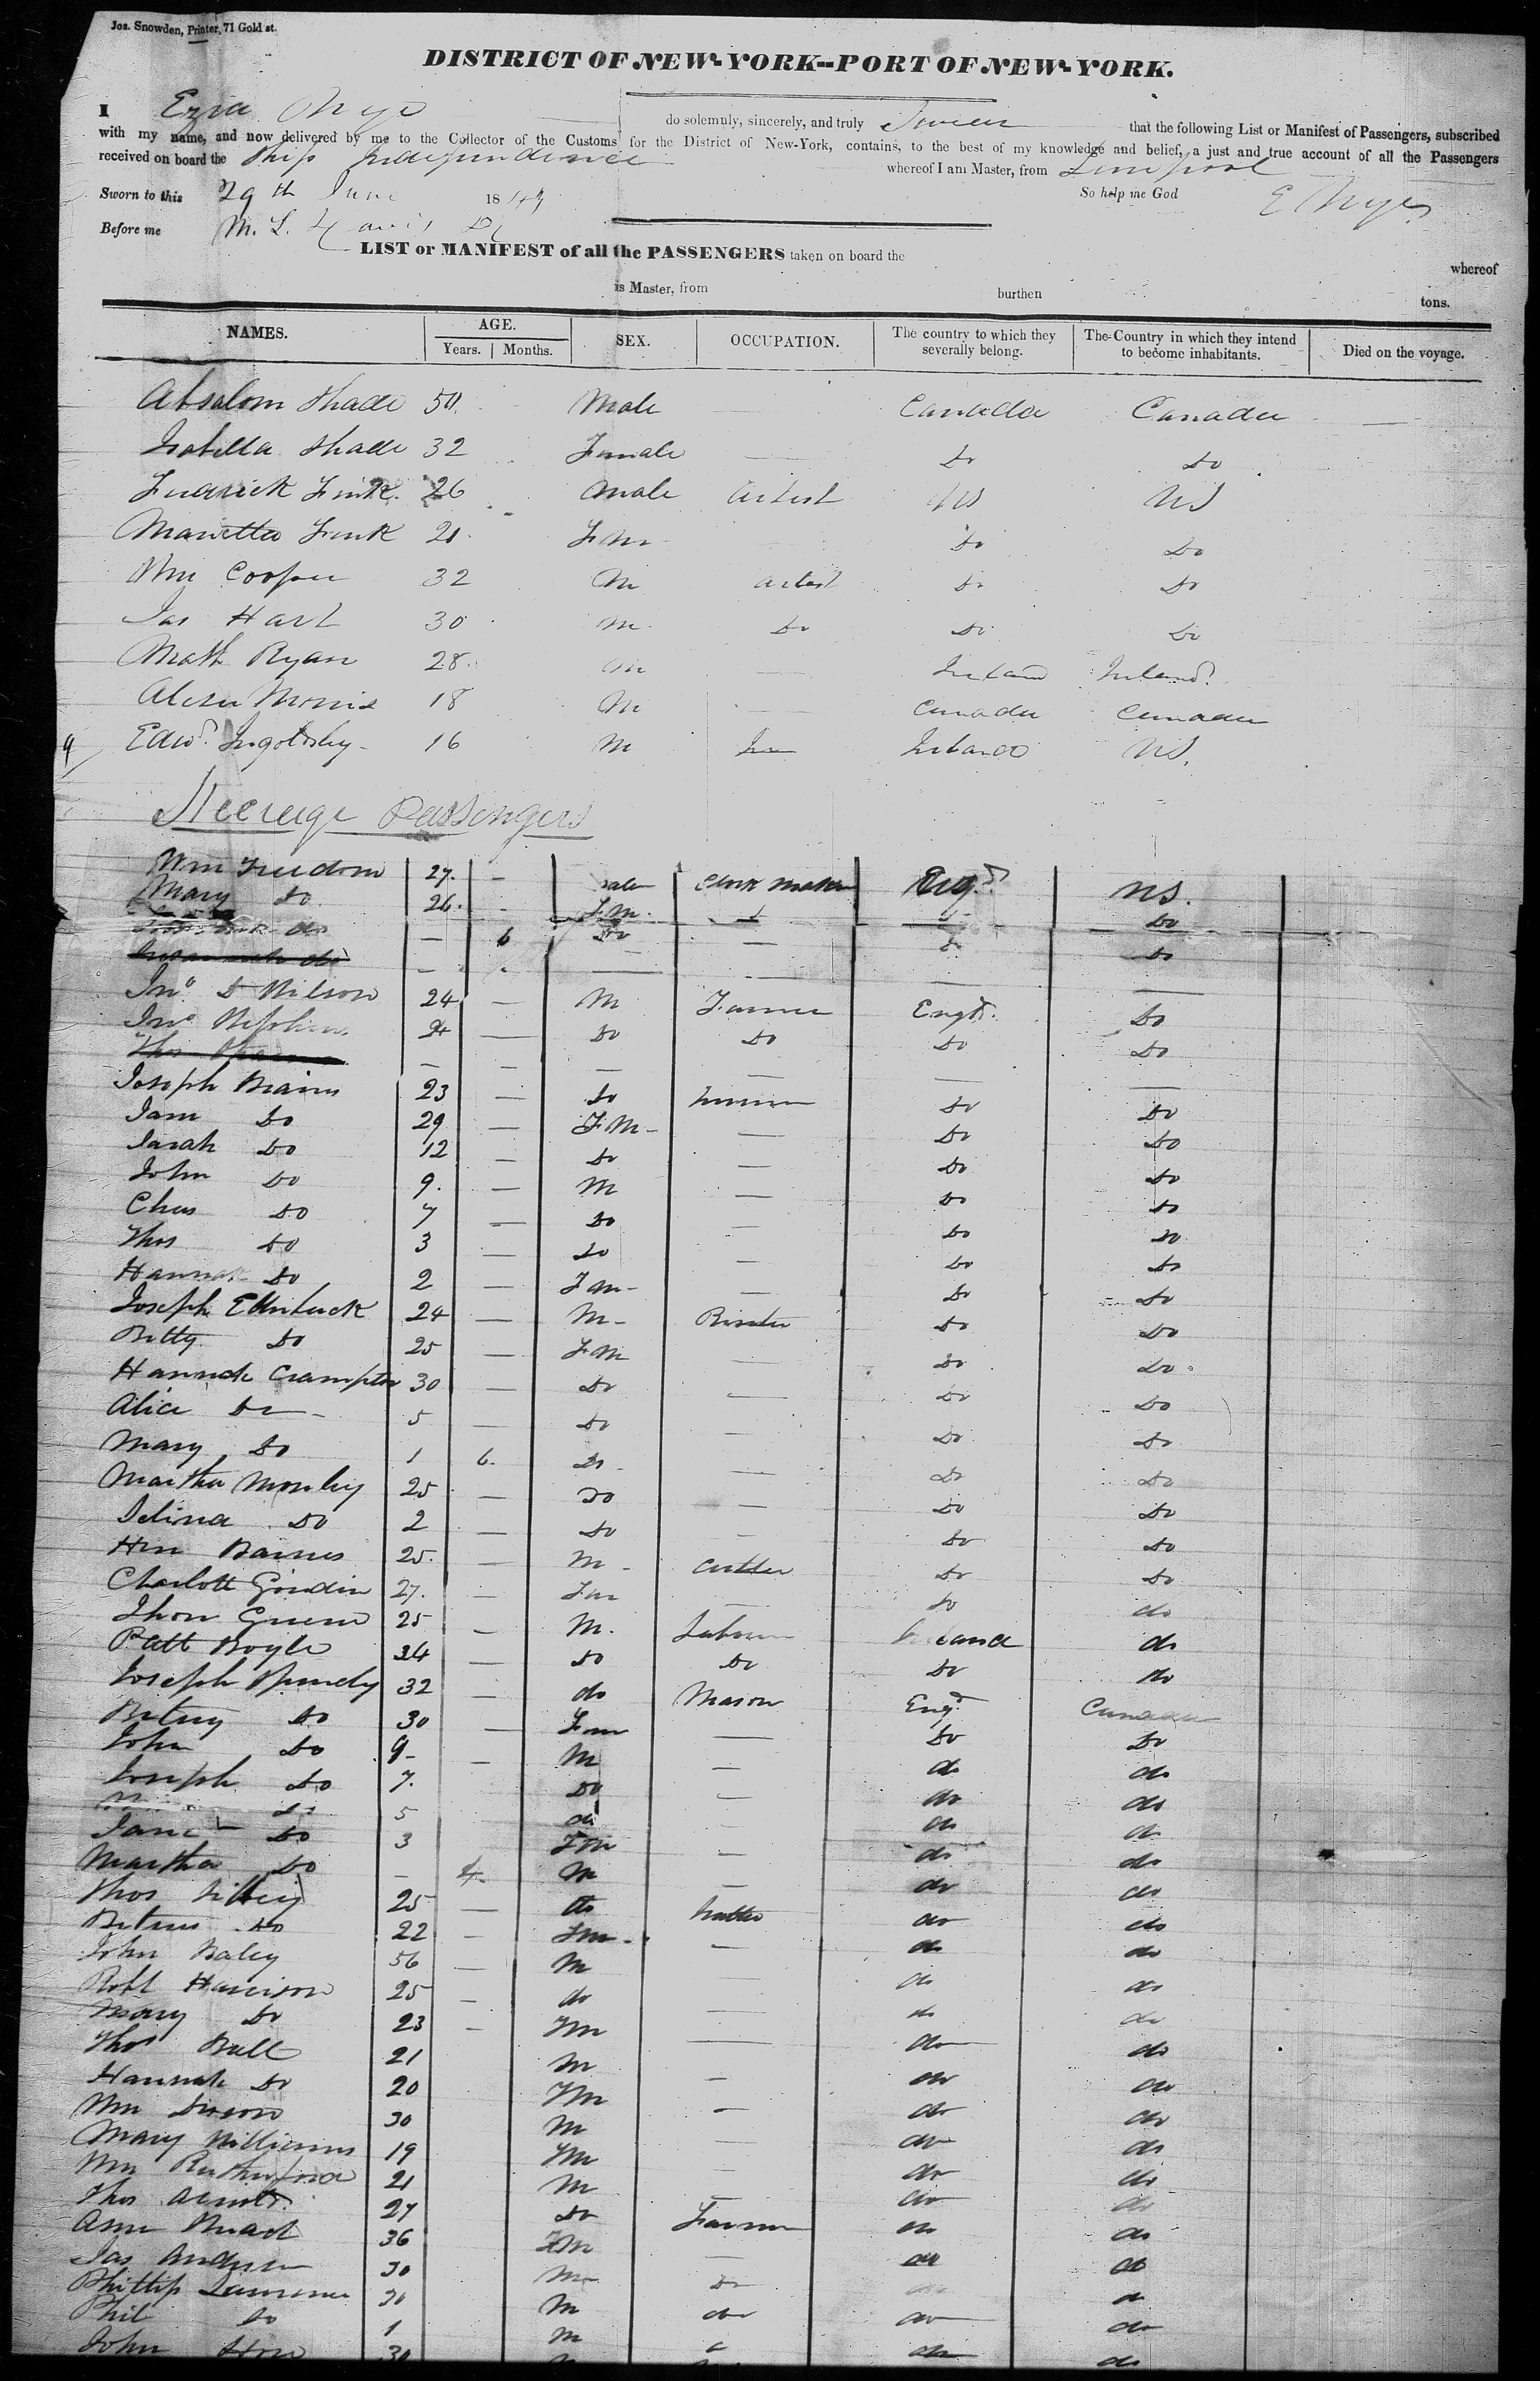 Jos. Snowden, Printer, 71 Gold st.
DISTRICT OF NEW-YORK--PORT OF NEW-YORK.
I Ezra Nye do solemnly, sincerely, and truly Swear that the following List or Manifest of Passengers, subscribed
with my name, and now delivered by me to the Collector of the Customs for the District of New-York, contains, to the best of my knowledge and belief, a just and true account of all the Passengers
received on board the Ship Independence whereof I am Master, from Liverpool
Sworn to this 29th June 18 So help me God E Nye
Before me M. L. Davis
LIST or MANIFEST of all the PASSENGERS taken on board the whereof
is Master, from burthen tons.
NAMES. AGE. Years. Months. SEX. OCCUPATION. The country to which they severally belong. The Country in which they intend to become inhabitants. Died on the voyage.
Absalom Shade 50 Male Canada Canada
Isabella Shade 32 Female Do Do
Frederick Fink 26 Male Artist US US
Marietta Fink 21 Fm Do Do
Wm Cooper 32 M Artist Do Do
Jas Hart 30 M Do Do Do
Math Ryan 28 M Ireland Ireland
Morris 18 M Canada Canada
9 Edwd. Ingoldsby 16 M Ireland US.
Steerage Passengers
Wm Freedom 27 male Clock Maker Engd. US.
Mary Do 26 Fm Do
do 6 Do Do Do
Jno. Wilson 24 M Farmer Engd. Do
Jno 24 Do Do Do Do
Joseph 23 Do Do Do
Jane Do 29 Fm Do Do
Sarah Do 12 Do Do Do
John Do 9 M Do Do
Chas Do 7 Do Do Do
Thos Do 3 Do Do Do
Hannah Do 2 Fm Do Do
Joseph 24 M Do Do
Betty Do 25 Fm Do Do
Hannah Crampton 30 Do Do Do
Alice Do 5 Do Do Do
Mary Do 1 6 Do Do Do
Martha Mosley 25 Do Do Do
Selina Do 2 Do Do Do
Hen Barnes 25 M Cutler Do Do
Charlott 27 Fm Do do
25 M. Labourer Ireland do
Patt Boyle 34 Do Do Do do
Joseph 32 do Mason Engd. Canada
Betsey Do 30 Fm Do Do
John Do 9 M do do
Joseph Do 7 Do do do
Do 5 do do do
Jane Do 3 Fm do do
Martha Do 4 M do do
Thos 25 do Hatter do do
Do 22 Fm do do
John Baley 56 M do do
Robt Harrison 25 do do do
Mary Do 23 Fm do do
Thos Bull 21 M do do
Hannah Do 20 Fm do do
Wm 30 M do do
Mary Williams 19 Fm do do
Wm Rutherford 21 M do do
Thos Arnold 27 Do Farmer do do
Ann 36 Fm do do
Jas 30 M Do do
Phillip Lawrence 30 M do do do
Phil Do 1 M do do
John 30 do do